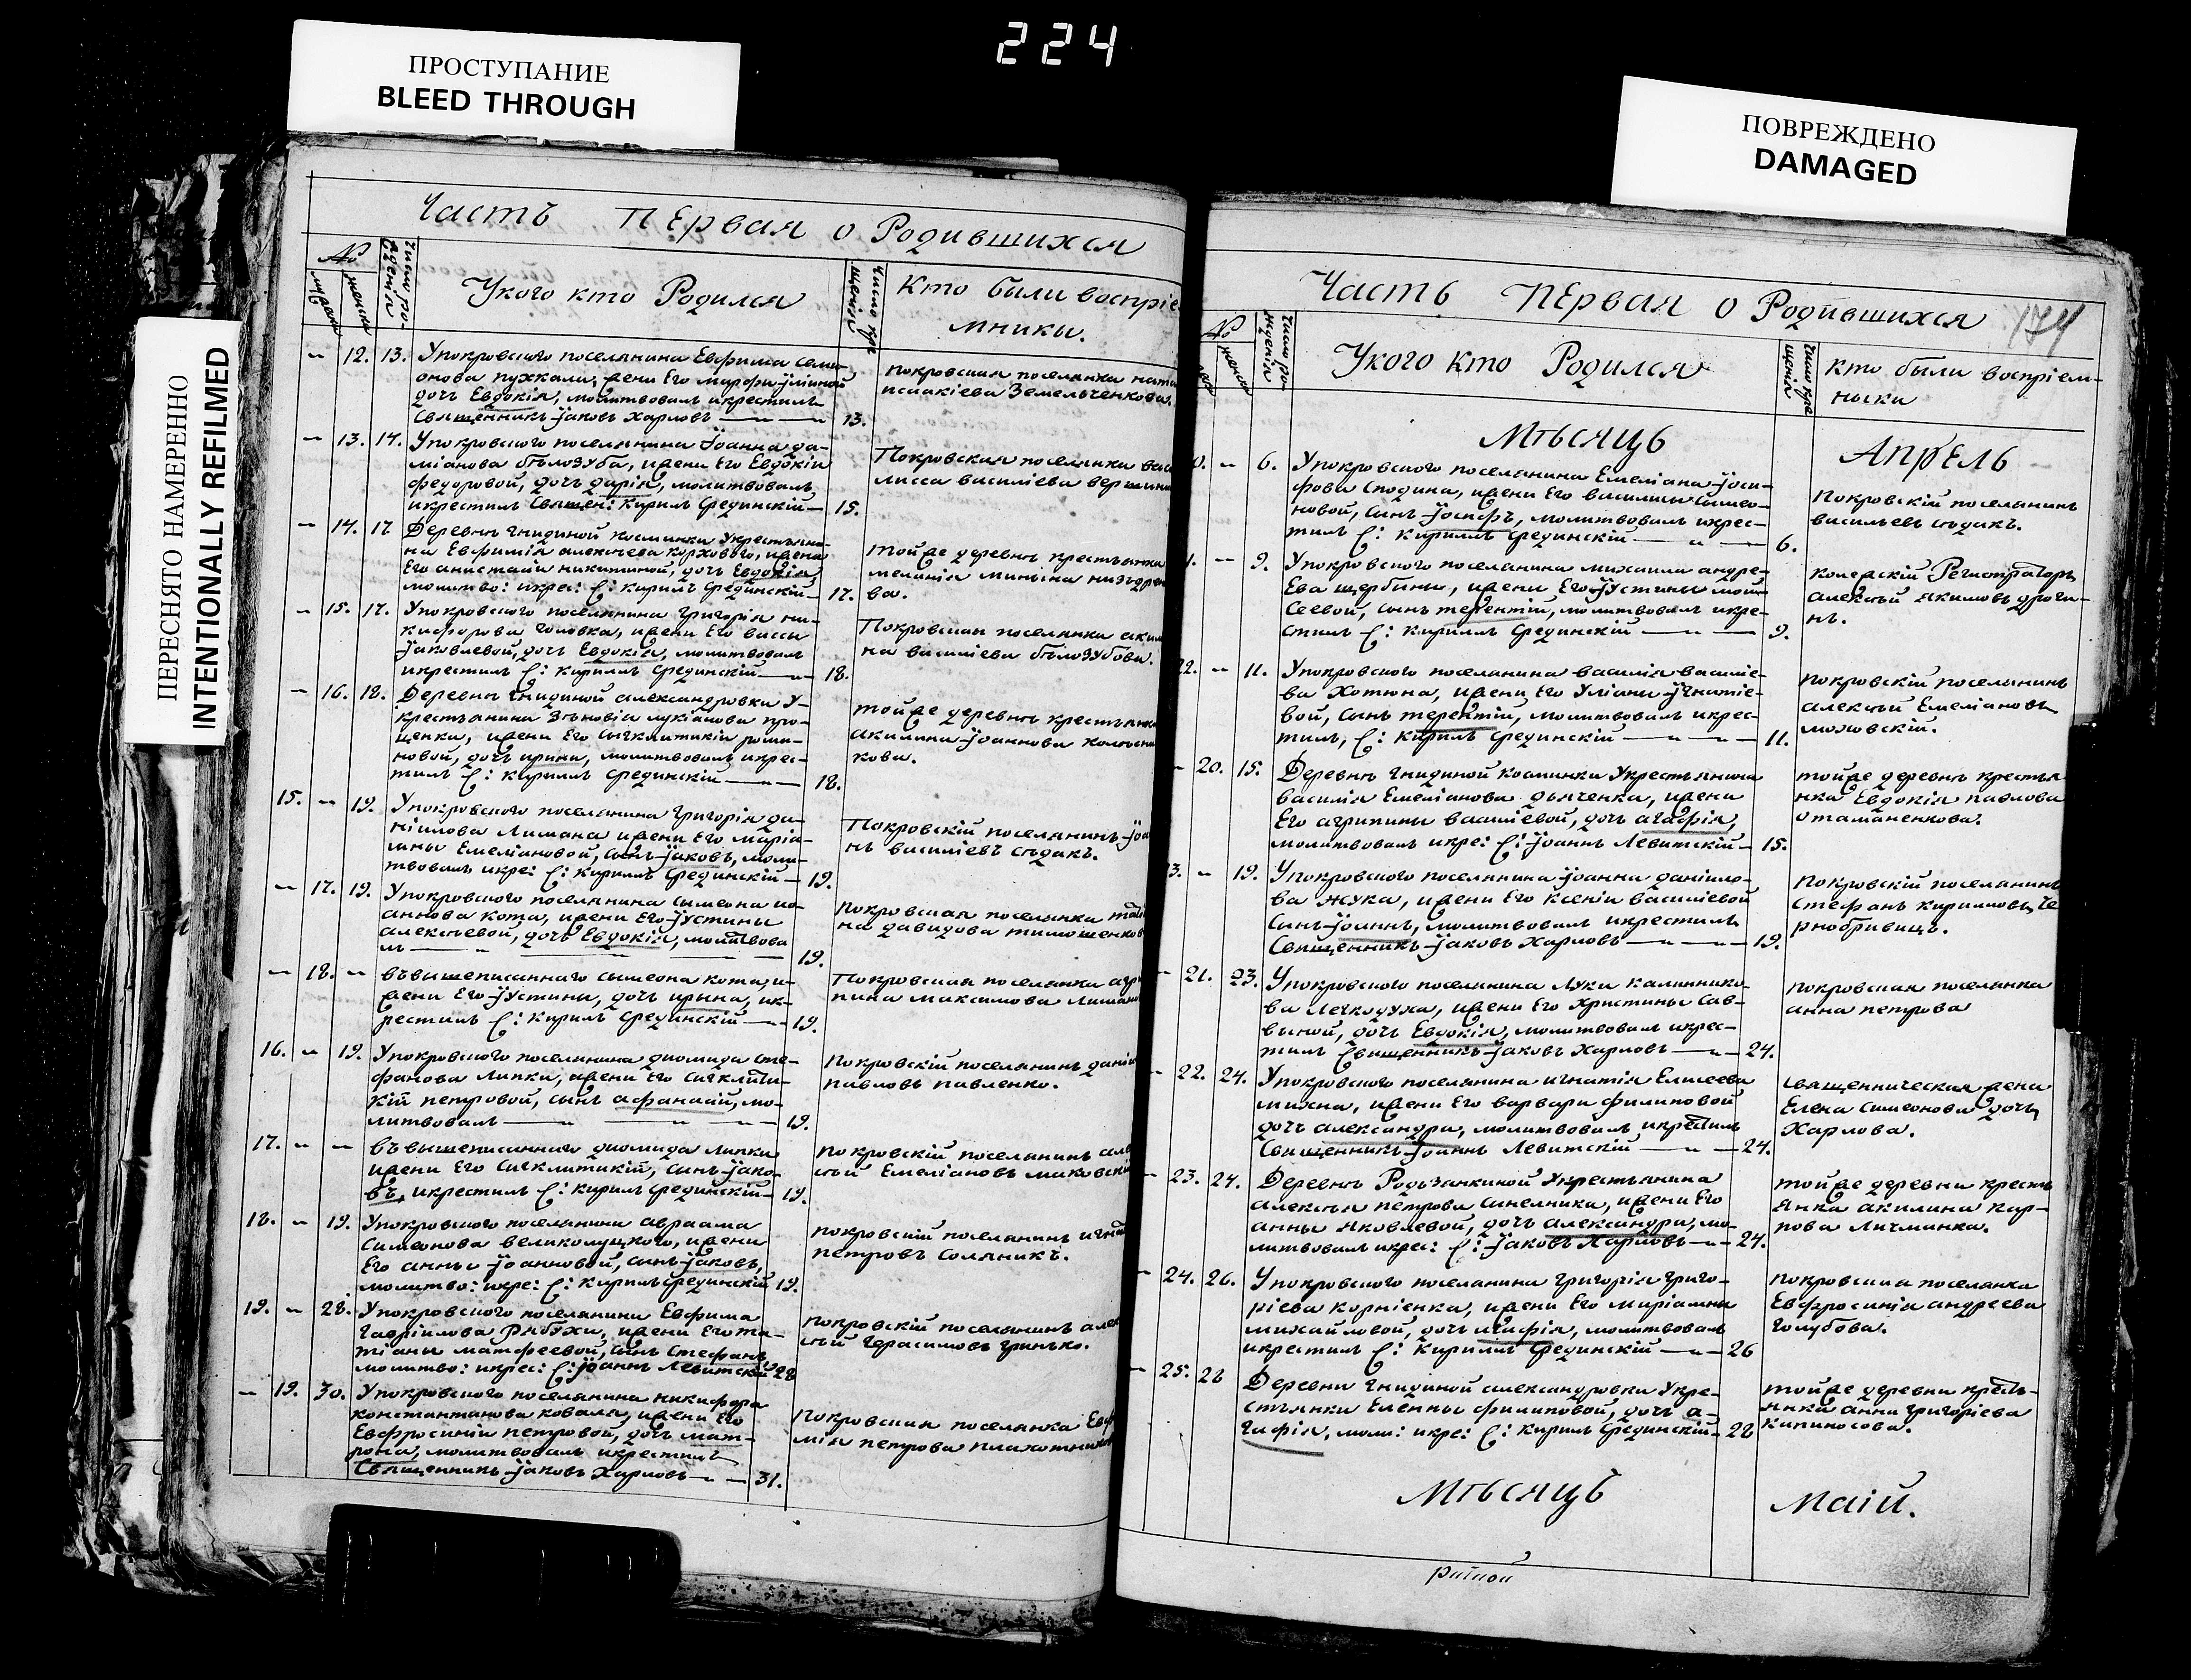 224
ПРОСТУПАНИЕ
BLEED THROUGH
ПОВРЕЖДЕНО
DAMAGED
ПЕРЕСНЯТО НАМЕРЕННО
INTENTIONALLY REFILMED
Часть Первая о Родившихся
№
Укого кто Родился
Кто были воспрiе
мники.
12. 13. Упокровского поселянина Евфима
дочь Евдокiя, молитвовалъ икрестилъ
Священникъ Iаковъ Харловъ 13.
покровская поселянка
Земельченкова.
13. 14. Упокровского поселянина Iоанна да-
мiанова бѣлозуба, ижени Его Евдокiи
федоровой, дочь дарiя, молитвовалъ
икрестилъ Священ: Кирилъ Срединскiй 15.
Покровская поселянка
василiева
14. 17. Деревнѣ гнидиной косминки Укрестьяни-
на Евфимiя алексѣева коржового, ижени
Его анастасiи никитиной, дочь Евдокiя,
молитво: икре: С: Кирилъ Срединскiй 17.
тойже деревнѣ крестьянка
меланiя
ва.
15. 17. Упокровского поселянина григорiя ни-
кифорова головка, ижени Его вассы
Iаковлевой, дочь Евдокiя, молитвовалъ
икрестилъ С: Кириллъ Срединскiй 18.
Покровская поселянка акили
на василiева бѣлозубова.
16. 18. Деревнѣ гнидиной александровки У-
крестьянина Зѣновiя лукiанова про-
ценка, ижени Его Сигклитикiи рома-
новой, дочь ирина, молитвовалъ икрес-
тилъ С: Кириллъ Срединскiй 18.
тойже деревнѣ крестьянка
акилина Iоаннова
кова.
15. 19. Упокровского поселянина григорiя да-
нiилова Лимана ижени Его марiа-
мны Емелiановой, сынъ Iаковъ, моли-
твовалъ икре: С: Кириллъ Срединскiй 19.
Покровскiй поселянинъ Iоа
нъ василiевъ сѣдакъ.
17. 19. Упокровского поселянина Симеона ио-
аннова кота, ижени Его Iустины
алексѣевой, дочь Евдокiя, молитвова
лъ 19.
Покровская поселянка татiа
на давидова тимошенков
18. въвышеписаннаго сымеона кота, и-
жени Его Iустины, дочь ирина, ик-
рестилъ С: Кирилъ Срединскiй 19.
Покровская поселянка агри
пина максимова лиманов
16. 19. Упокровского поселянина диомида сте-
фанова Липки, ижени Его Сигклити-
кiй петровой, сынъ афанасiй, мо-
литвовалъ 19.
Покровскiй поселянинъ данiи
павловъ павленко.
17. въвышеписаннаго диомида липки
ижени Его Сигклитикiй, сынъ Iако-
въ, икрестилъ С: Кирилъ Срединскiй 19.
покровскiй поселянинъ але
сѣй Емелiановъ маковскi
18. 19. Упокровского поселянина авраама
Симеонова великоцкого, ижени
Его анны Iоанновой, сынъ Iаковъ,
молитво: икре: С: Кирилъ Срединскiй 19.
покровскiй поселянинъ игна
петровъ Соляникъ.
19. 28. Упокровского поселянина Евфима
гаврiилова Рябухи, ижени Его та-
тiаны матфеевой, сынъ Стефанъ,
молитво: икрес: С: Iоаннъ Левитскiй 28
покровскiй поселянинъ алек
сѣй Герасимовъ гринько.
19. 30. Упокровского поселянина никифора
константанова коваля, ижени Его
Евфросинiи петровой, дочь мат-
рона, молитвовалъ икрестилъ
Священникъ Iаковъ Харловъ 31.
Покровская поселянка Евфи
мiя петрова
Часть Первая о Родившихся
174
№
Укого кто Родился
Кто были воспрiем-
ники
Мѣсяцъ Апрѣль
6. Упокровского поселянина Емелiана Iоси-
фова Сподина, ижени Его василисы Сымео-
новой, Сынъ Iосифъ, молитвовалъ икрес-
тилъ С: Кириллъ Срединскiй 6.
Покровскiй поселянинъ
васильевъ сѣдакъ.
9. Упокровского поселянина михаила андре-
Ева щербини, ижени Его Iустины мои
сеевой, сынъ терентiй, молитвовалъ икре-
стилъ С: Кириллъ Срединскiй 9.
колежскiй Регистраторъ
алексѣй якимовъ
нъ.
22. 11. Упокровского поселянина василiя василiе-
ва Хотюна, ижени Его Улiаны Iгнатiе-
вой, Сынъ терентiй, молитвовалъ икрес-
тилъ, С: Кирилъ Срединскiй 11.
покровскiй поселянинъ
алексѣй Емелiановъ
маховскiй.
20. 15. Деревнѣ гнидиной косминки Укрестьянина
василiя Емелiанова дьяченка, ижени
Его агрипины василiевой, дочь агафiя,
молитвовалъ икре: С: Iоаннъ Левитскiй 15.
тойже деревнѣ крестья
нка Евдокiя павлова
отаманенкова.
23. 19. Упокровского поселянина Iоанна данiило-
ва Жука, ижени Его Ксенiи василiевой
Сынъ Iоаннъ, молитвовалъ икрестилъ
Священникъ Iаковъ Харловъ 19.
Покровскiй поселянинъ
Стефанъ кириловъ че
рнобривецъ.
21. 23. Упокровского поселянина Луки калинико-
ва Легкодуха, ижени Его Христины Сав-
виной, дочь Евдокiя, молитвовалъ икрес-
тилъ Священникъ Iаковъ Харловъ 24.
покровская поселянка
анна петрова
22. 24. Упокровского поселянина игнатiя Елисеева
михна, ижени Его варвари филиповой
дочь александра, молитвовалъ икрестилъ
Священникъ Iоаннъ Левитскiй 24.
священническая жена
Елена Симеонова дочь
Харлова.
23. 24. Деревнѣ Родзанкиной Укрестьянина
алексѣя петрова Синелника, ижени Его
анны Яковлевой, дочь александра, мо-
литвовалъ икрес: С: Iаковъ Харловъ 24.
тойже деревни кресть
янка акилина кар-
пова Личманка.
24. 26. Упокровского поселянина григорiя григо-
рiева корнiенка, ижени Его марiамны
михайловой, дочь агафiя, молитвовалъ
икрестилъ С: Кириллъ Срединскiй 26
покровская поселянка
Евфросинiя андреева
голубова.
25. 28 Деревни гнидиной александровки Укре-
стьянки Еленны филиповой, дочь а-
гафiя, моли: икре: С: Кирилъ Срединскiй 28
тойже деревни кресть-
янка анна григорiева
Кипиносова.
Мѣсяцъ Маiй.